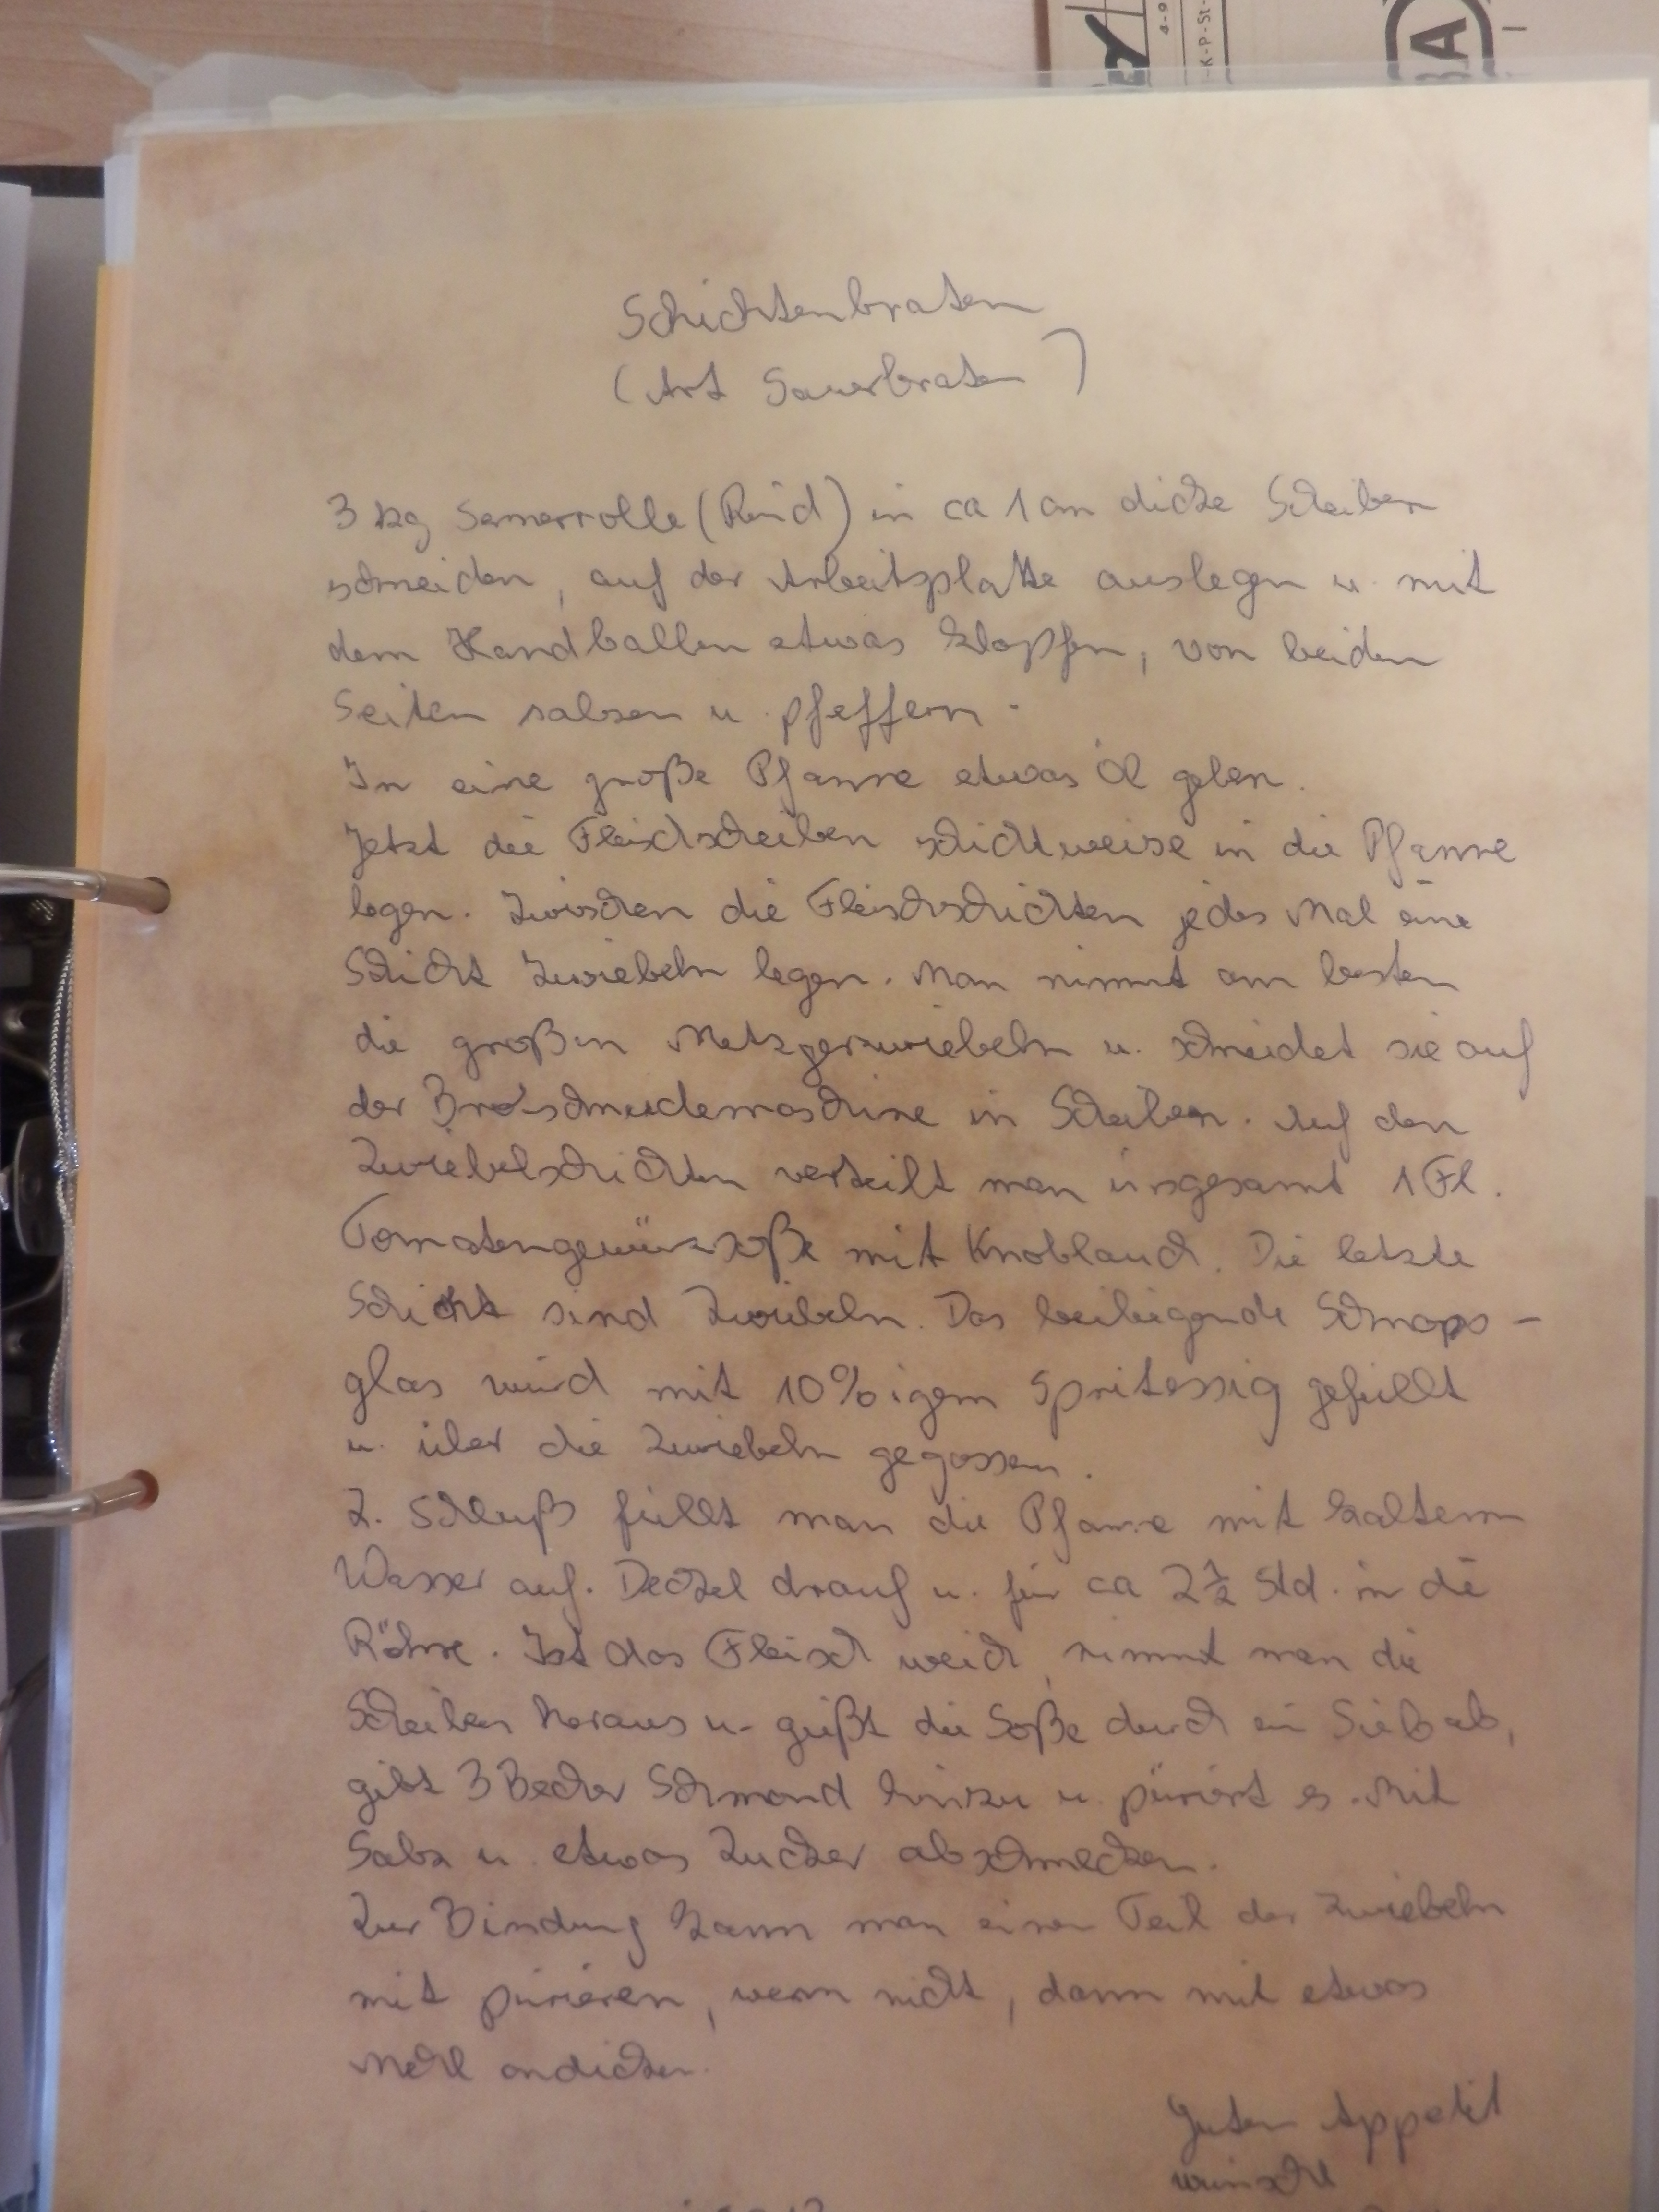 4-0
K-P-St-
BA
Schichtenbraten
(Art Sauerbraten)
3 kg Semerrolle (Rind) in ca 1 cm dicke Scheiben
schneiden, auf der Arbeitsplatte auslegen u. mit
dem Handballen etwas klopfen, von beiden
Seiten salzen u. pfeffern.
In eine große Pfanne etwas Öl geben.
Jetzt die Fleischscheiben schichtweise in die Pfanne
legen. Zwischen die Fleischschichten jedes Mal eine
Schicht Zwiebeln legen. Man nimmt am besten
die großen Metzgerzwiebeln u. schneidet sie auf
der Brotschneidemaschine in Scheiben. Auf den
Zwiebelschichten verteilt man insgesamt 1 Fl.
Tomatengewürzsoße mit Knoblauch. Die letzte
Schicht sind Zwiebeln. Das beiliegende Schnaps-
glas wird mit 10%igem Spritessig gefüllt
u. über die Zwiebeln gegossen.
Z. Schluß füllt man die Pfanne mit kaltem
Wasser auf. Deckel drauf u. für ca 2½ Std. in die
Röhre. Ist das Fleisch weich, nimmt man die
Scheiben heraus u. gießt die Soße durch ein Sieb ab,
gibt 3 Becher Schmand hinzu u. püriert es. Mit
Salz u. etwas Zucker abschmecken.
Zur Bindung kann man einen Teil der Zwiebeln
mit pürieren, wenn nicht, dann mit etwas
Mehl andicken.
Guten Appetit
wünscht